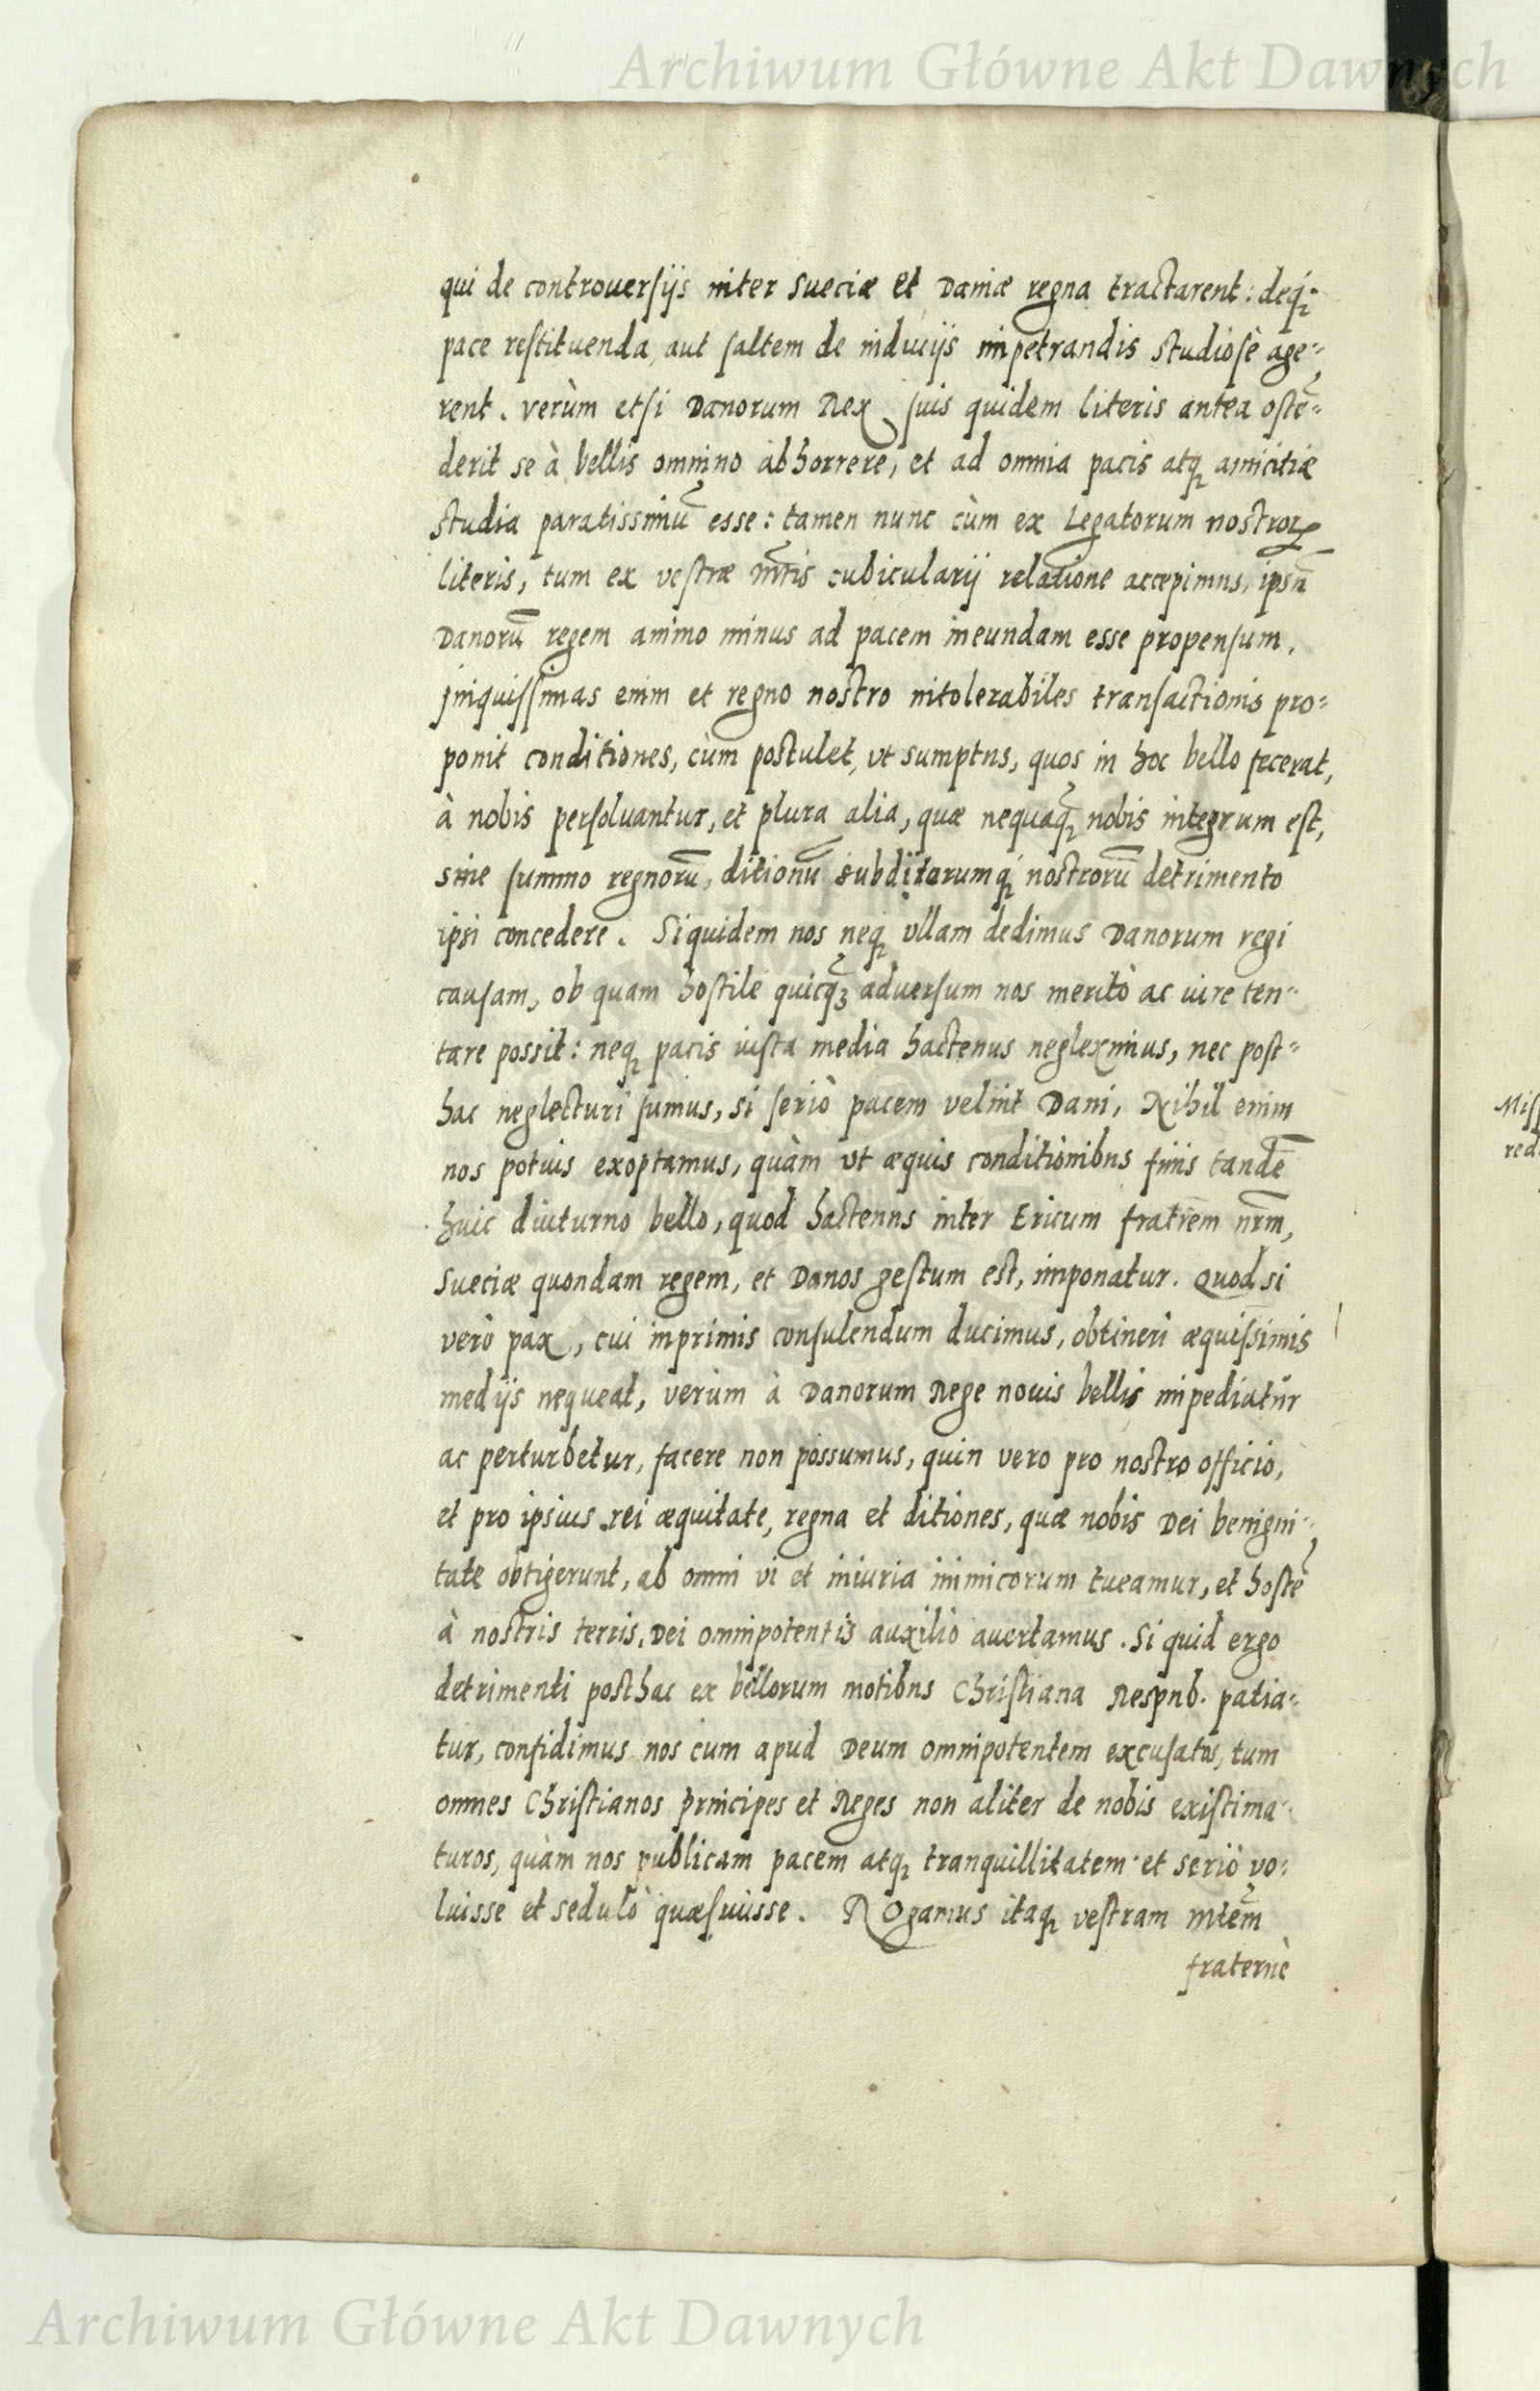 Archiwum Główne Akt Dawnych
qui de controuersijs inter Sueciæ et Daniæ regna tractarent: deq;
pace restituenda, aut saltem de inducijs impetrandis studiosè age=
rent. verùm etsi Danorum Rex suis quidem literis antea ostē=
derit se à bellis omnino abhorrere, et ad omnia pacis atq; amicitiæ
studia paratissimū esse: tamen nunc cùm ex Legatorum nostroꝝ
literis, tum ex vestræ Mtis cubicularij relatione accepimus, ipsū
Danorū regem animo minus ad pacem ineundam esse propensum.
Iniquissimas enim et regno nostro intolerabiles transactionis pro=
ponit conditiones, cùm postulet, vt sumptus, quos in hoc bello fecerat,
à nobis persoluantur, et plura alia, quæ nequaq̄; nobis integrum est,
sine summo regnorū, ditionū subditorumq; nostrorū detrimento
ipsi concedere. Siquidem nos neq; vllam dedimus Danorum regi
causam, ob quam hostile quicq̄ȝ aduersum nos meritò ac iure ten=
tare possit: neq; pacis iusta media hactenus negleximus, nec post=
hac neglecturi sumus, si seriò pacem velint Dani, Nihil enim
nos potius exoptamus, quàm vt æquis conditionibus finis tandē
huic diuturno bello, quod hactenus inter Ericum fratrem nr̄m,
Sueciæ quondam regem, et Danos gestum est, imponatur. Quod si
verò pax, cui inprimis consulendum ducimus, obtineri æquissimis
medijs nequeat, verùm à Danorum Rege nouis bellis impediatur
ac perturbetur, facere non possumus, quin vero pro nostro officio,
et pro ipsius rei æquitate, regna et ditiones, quæ nobis Dei benigni=
tate obtigerunt, ab omni vi et iniuria inimicorum tueamur, et hostē
à nostris terris, Dei omnipotentis auxilio auertamus. Si quid ergo
detrimenti posthac ex bellorum motibus Christiana Respub. patia=
tur, confidimus nos cum apud Deum omnipotentem excusatos, tum
omnes Christianos principes et Reges non aliter de nobis existima=
turos, quàm nos publicam pacem atq; tranquillitatem et seriò vo=
luisse et sedulò quæsiuisse. Rogamus itaq; vestram Mtēm
fraternè
Archiwum Główne Akt Dawnych